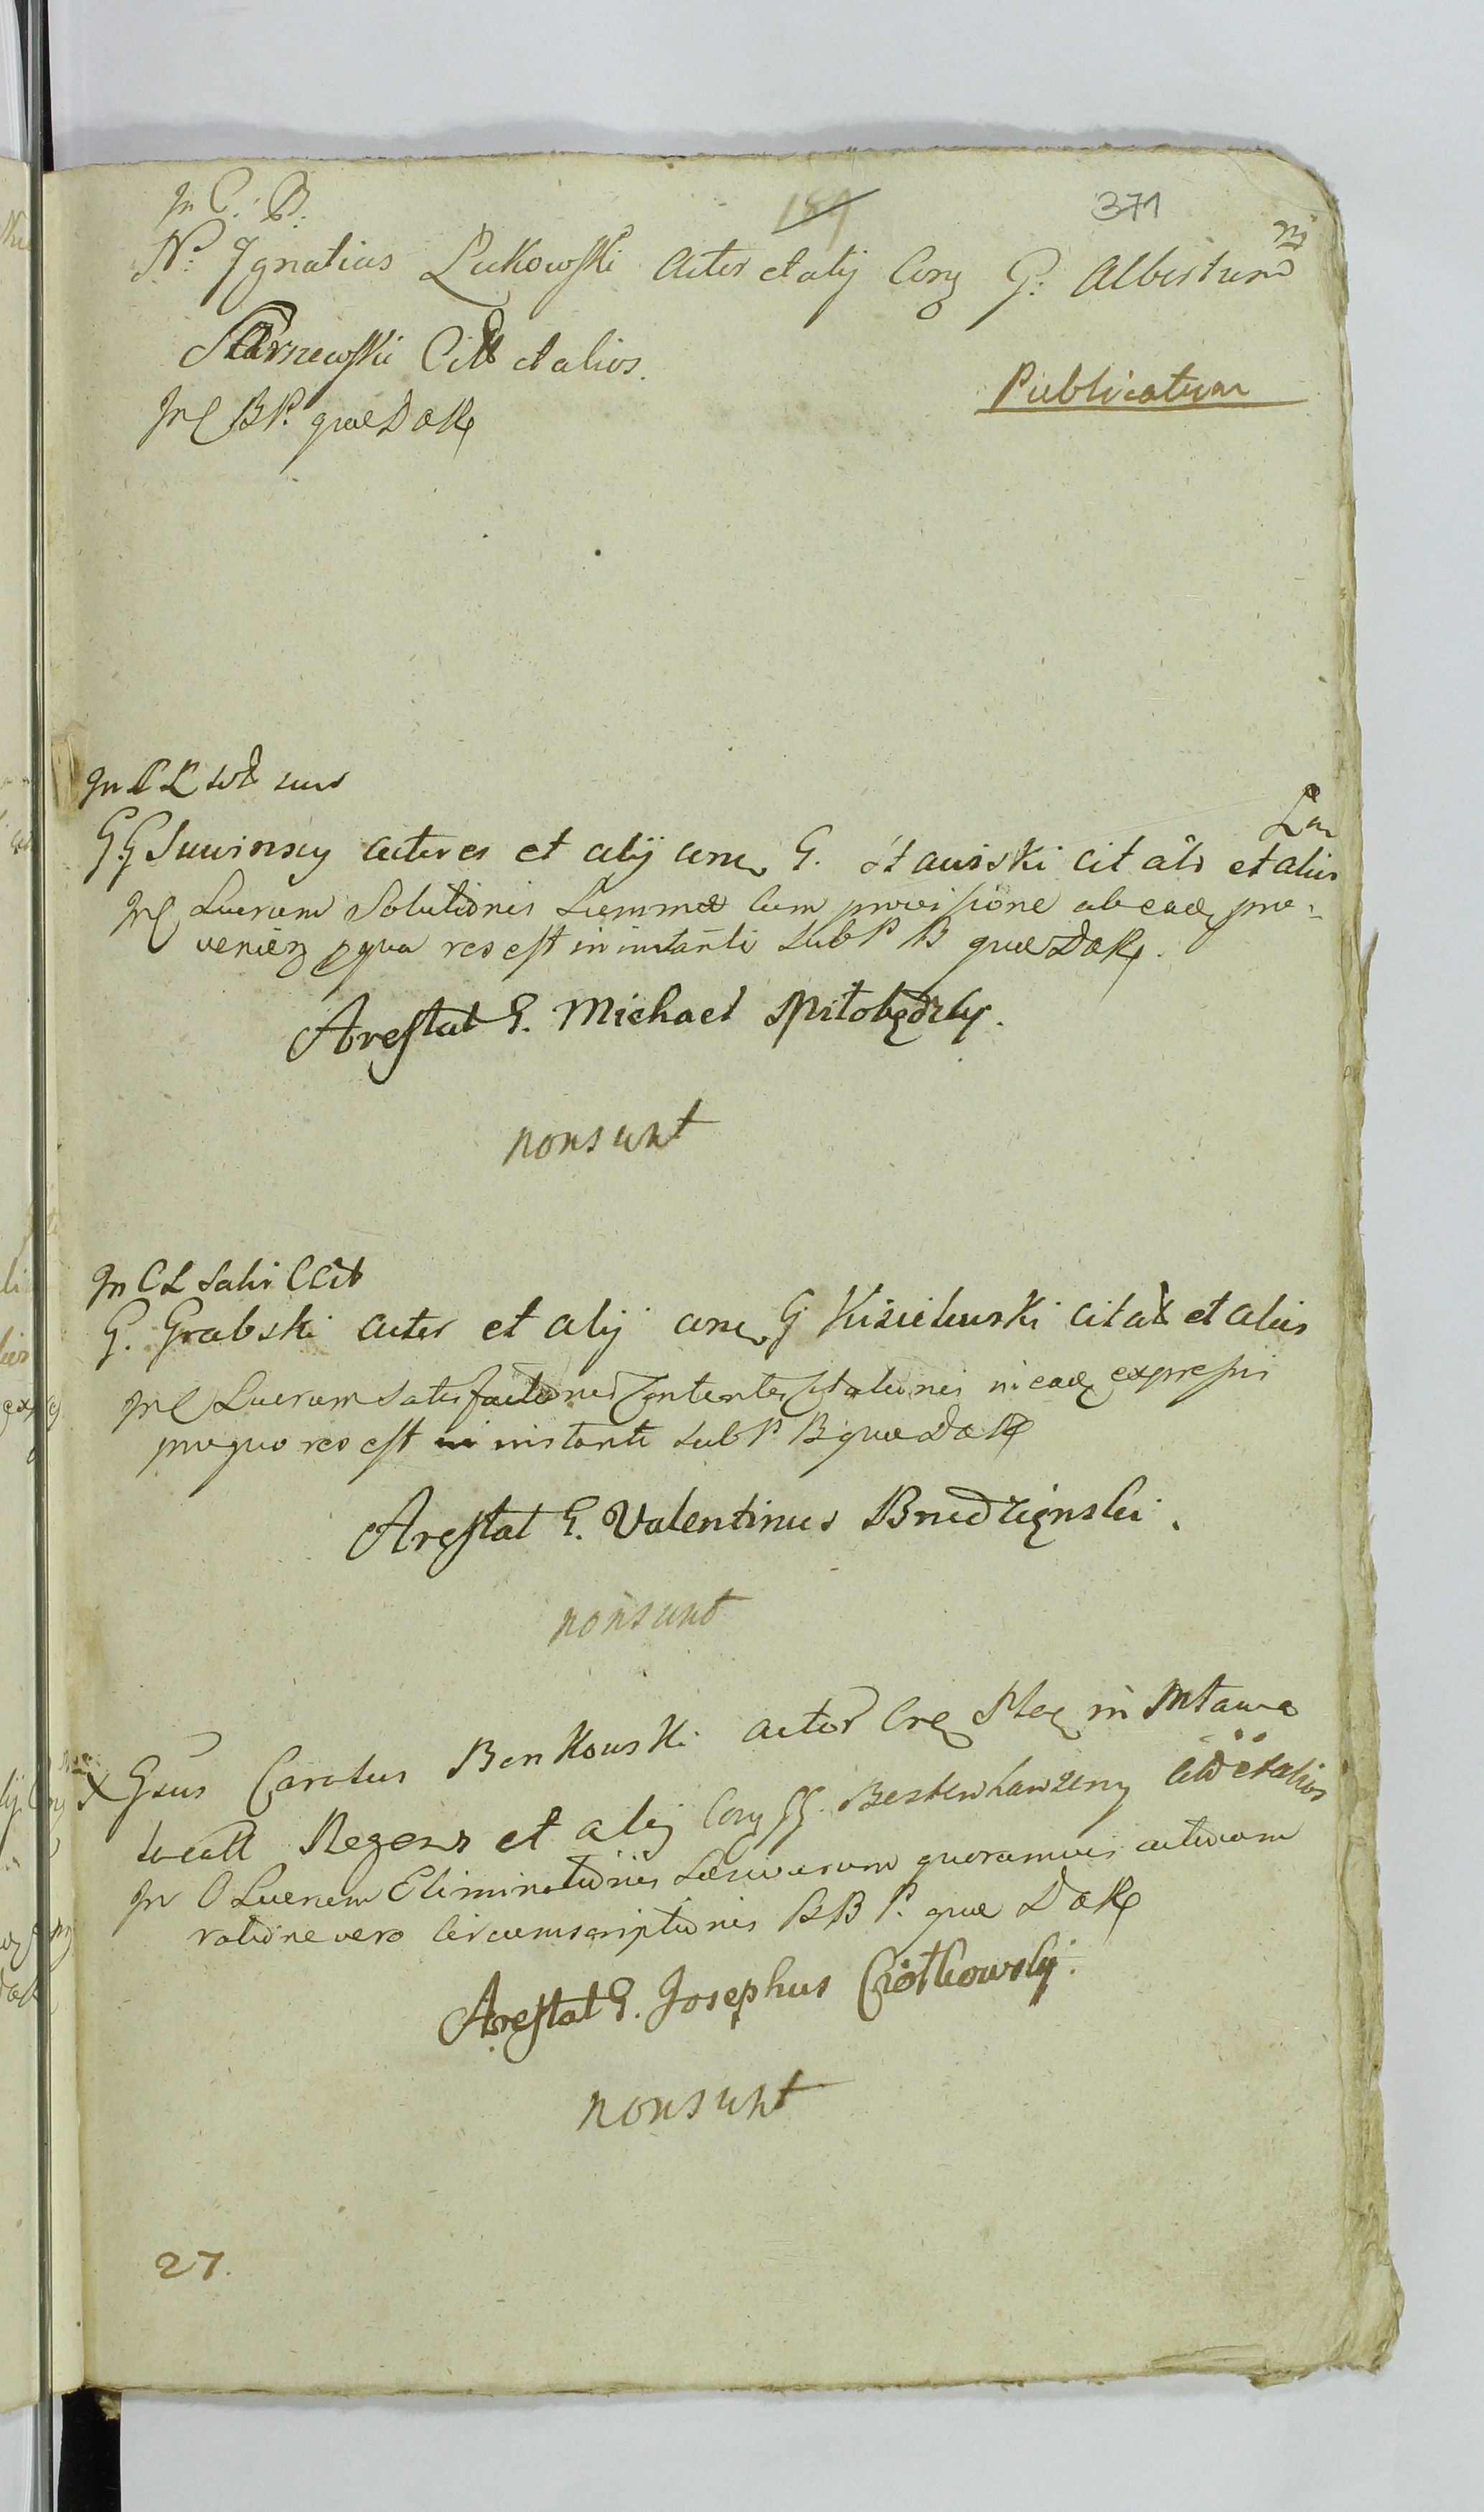 189 371
In C. B.
N: Ignatius Lukowski Actor et alij Conq G: Albertum
Starzewski Citt et alios.
In C BP. quæ DORq
Publicatum
In C L
G.G Suwinscy actores et alij conq G. Stawiski citato et alios
In C Lucrum Solutionis Summæ cum provisione ab eadq pro-
venienq pqua res est in instanti sub P B quæ DORq.
Arestat G. Michael Pstobędzky.
non sunt
In C L Satis CCit
G. Grabski actor et alij conq G Kisielewski citat et alios
In C Lucrum Satisfactionis Contentis Citationis in eadq expressis
pro quo res est instanti sub P B quæ DORq
Arestat G. Valentinus Brudzięnski.
non sunt
x Gsus Carolus Benkowski actor Crq Plocq in Mława
locatt Regens et alij Conq GG. et alios
In C Lucrum Eliminationis Læsivarum quoramvis actorum
ratione vero Circumscriptionis BB P. quæ DORq
Arestat G. Josephus Ciotkowsky.
non sunt
27.